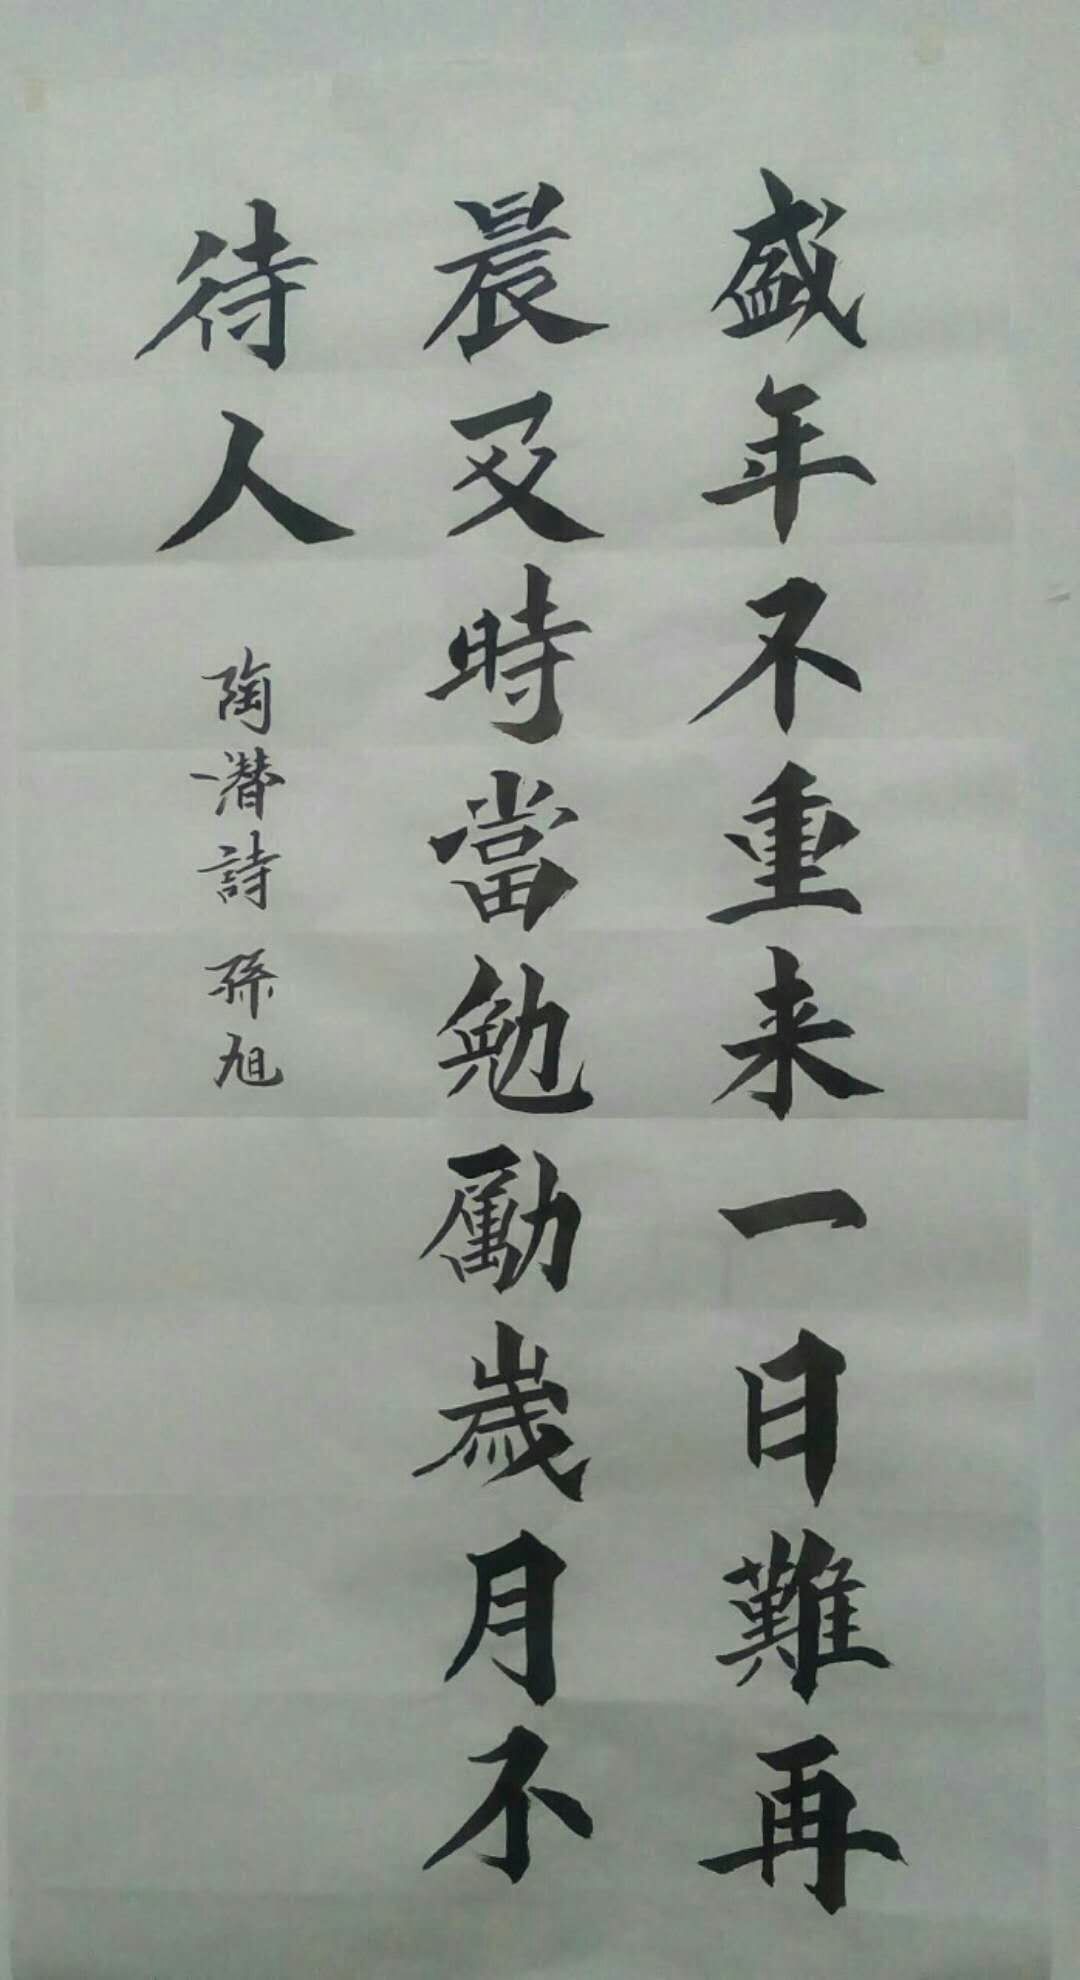 盛年不重来一日難再
晨及時當勉勵歲月不
待人
陶潛詩 孫旭